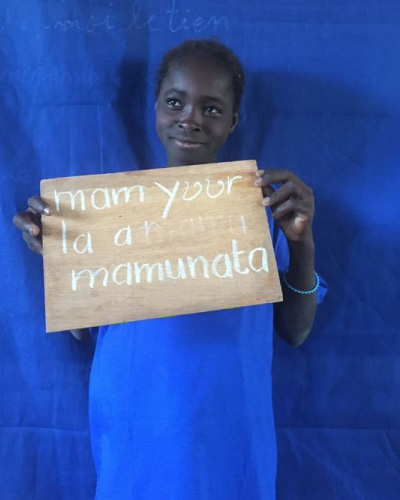 moi le tien
mam yʋʋr
la a mamu
mamunata